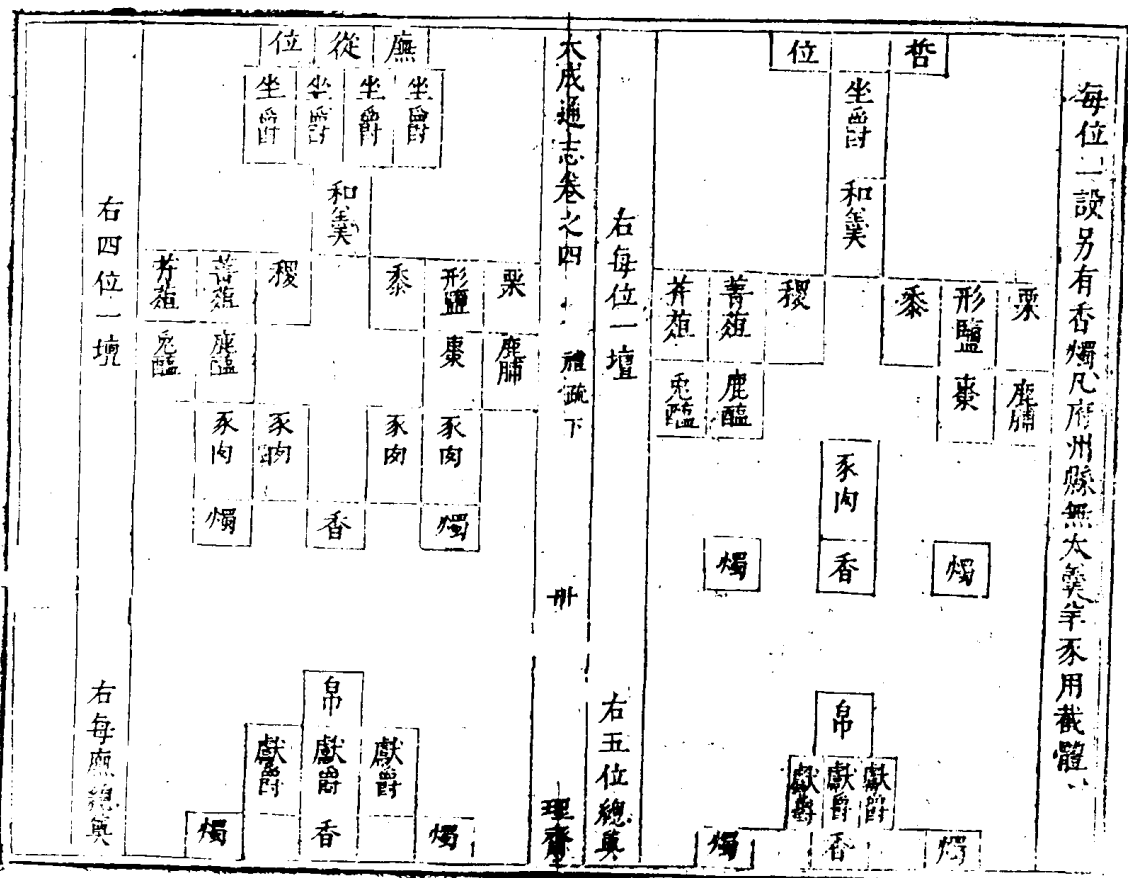 每位一設另有香燭凡府州縣無太羹羊豕用截體
哲位
坐爵
和羹
栗 形鹽 黍 稷 菁菹 芹菹
鹿脯 棗 鹿醢 兎醢
豕肉
燭 香 燭
帛
獻爵 獻爵 獻爵
燭 香 燭
右每位一壇
右五位總奠
大成通志卷之四
禮疏下
卅
理齋
廡從位
坐爵 坐爵 坐爵 坐爵
和羹
栗 形鹽 黍 稷 菁菹 芹菹
鹿脯 棗 鹿醢 兎醢
豕肉 豕肉 豕肉 豕肉
燭 香 燭
帛
獻爵 獻爵 獻爵
燭 香 燭
右四位一壇
右每廡總奠